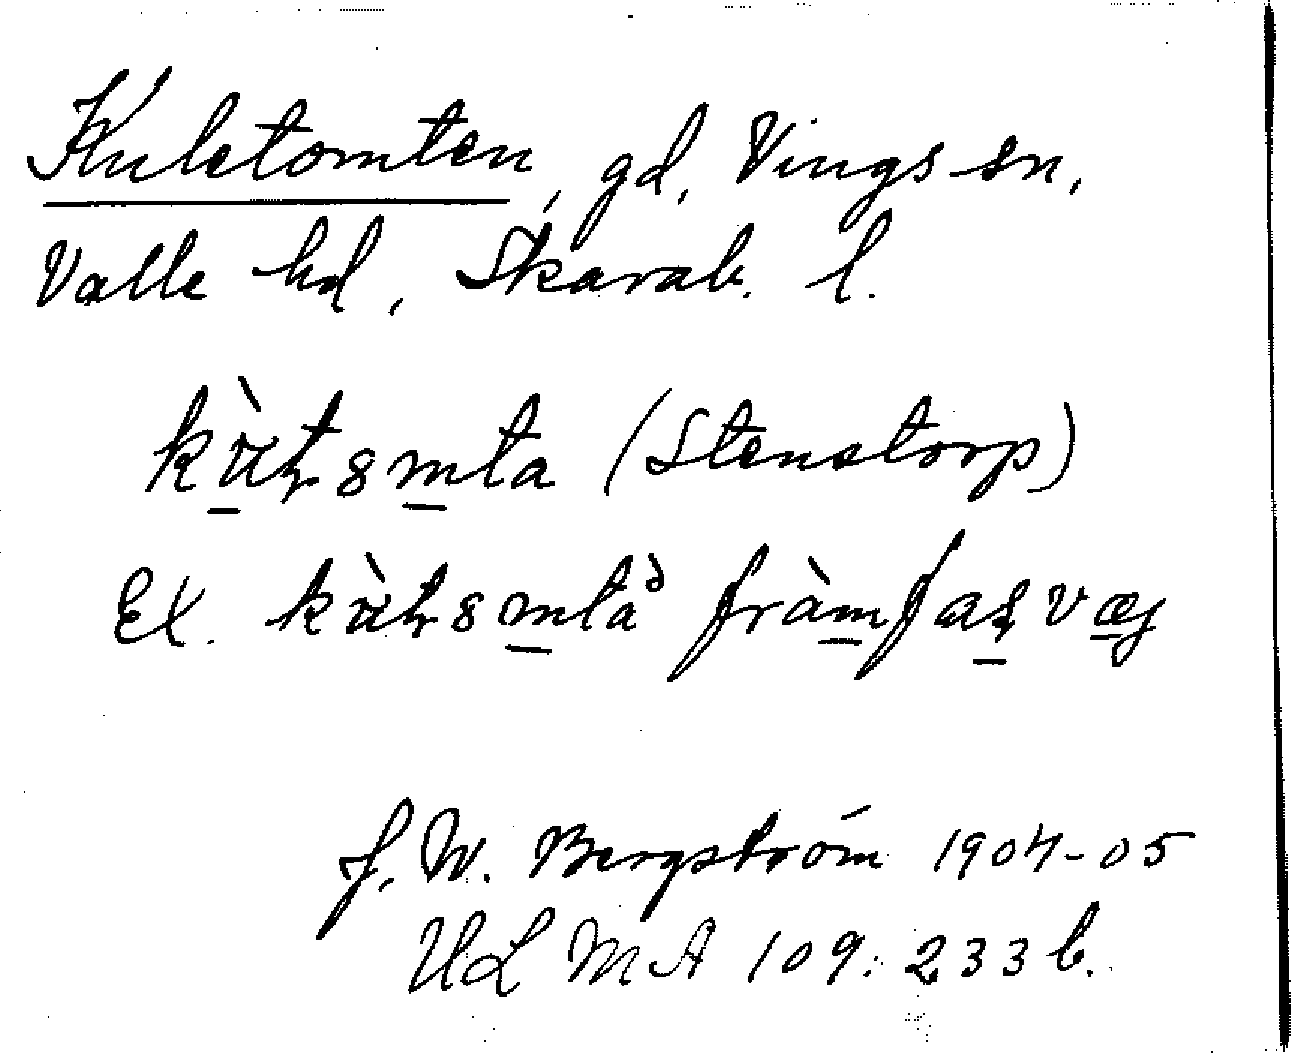 Kuletomten, gd, Vings sn,
Valle hd, Skarab. l.
(Stenstorp)
Ex.
J. W. Bergström 1904-05
ULMA 109:233 b.